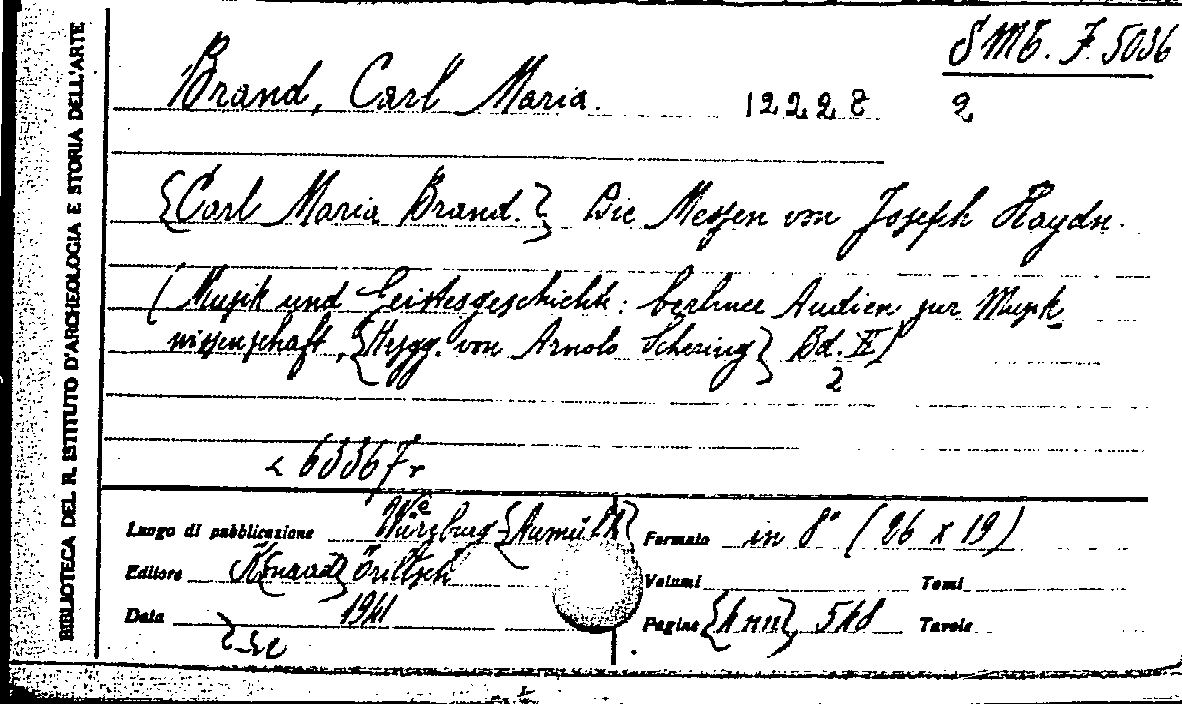 BIBLIOTECA DEL R. ISTITUTO D'ARCHEOLOGIA E STORIA DELL'ARTE
SMB. F. 5036
Brand, Carl Maria. 12228 2
{Carl Maria Brand.} Die Messen von Joseph Haydn.
(Musik und Geistesgeschichte: berliner Studien zur Musik
wissenschaft, {Hrsgg. von Arnold Schering} Bd. II)
2
< 63367
Luogo di pubblicazione Würzburg {Aumühle} Formato in 8° (26 x 19)
Editore K{onrad} Triltsch Volumi Tomi
Data 1941 Pagine {4 nn}, 548 Tavole